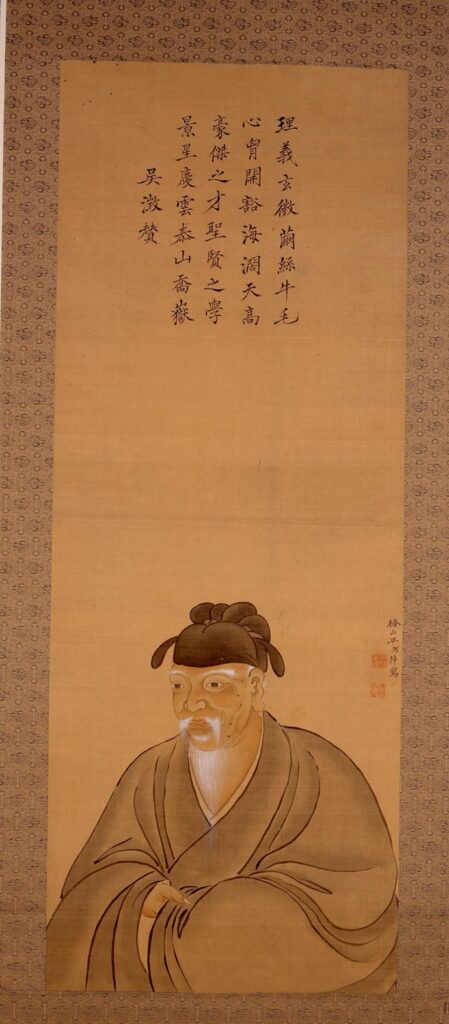 理義玄微繭絲牛毛
心胷開豁海濶天高
豪傑之才聖賢之學
景星慶雲泰山喬嶽
吳澂賛
椿山平弼拜寫